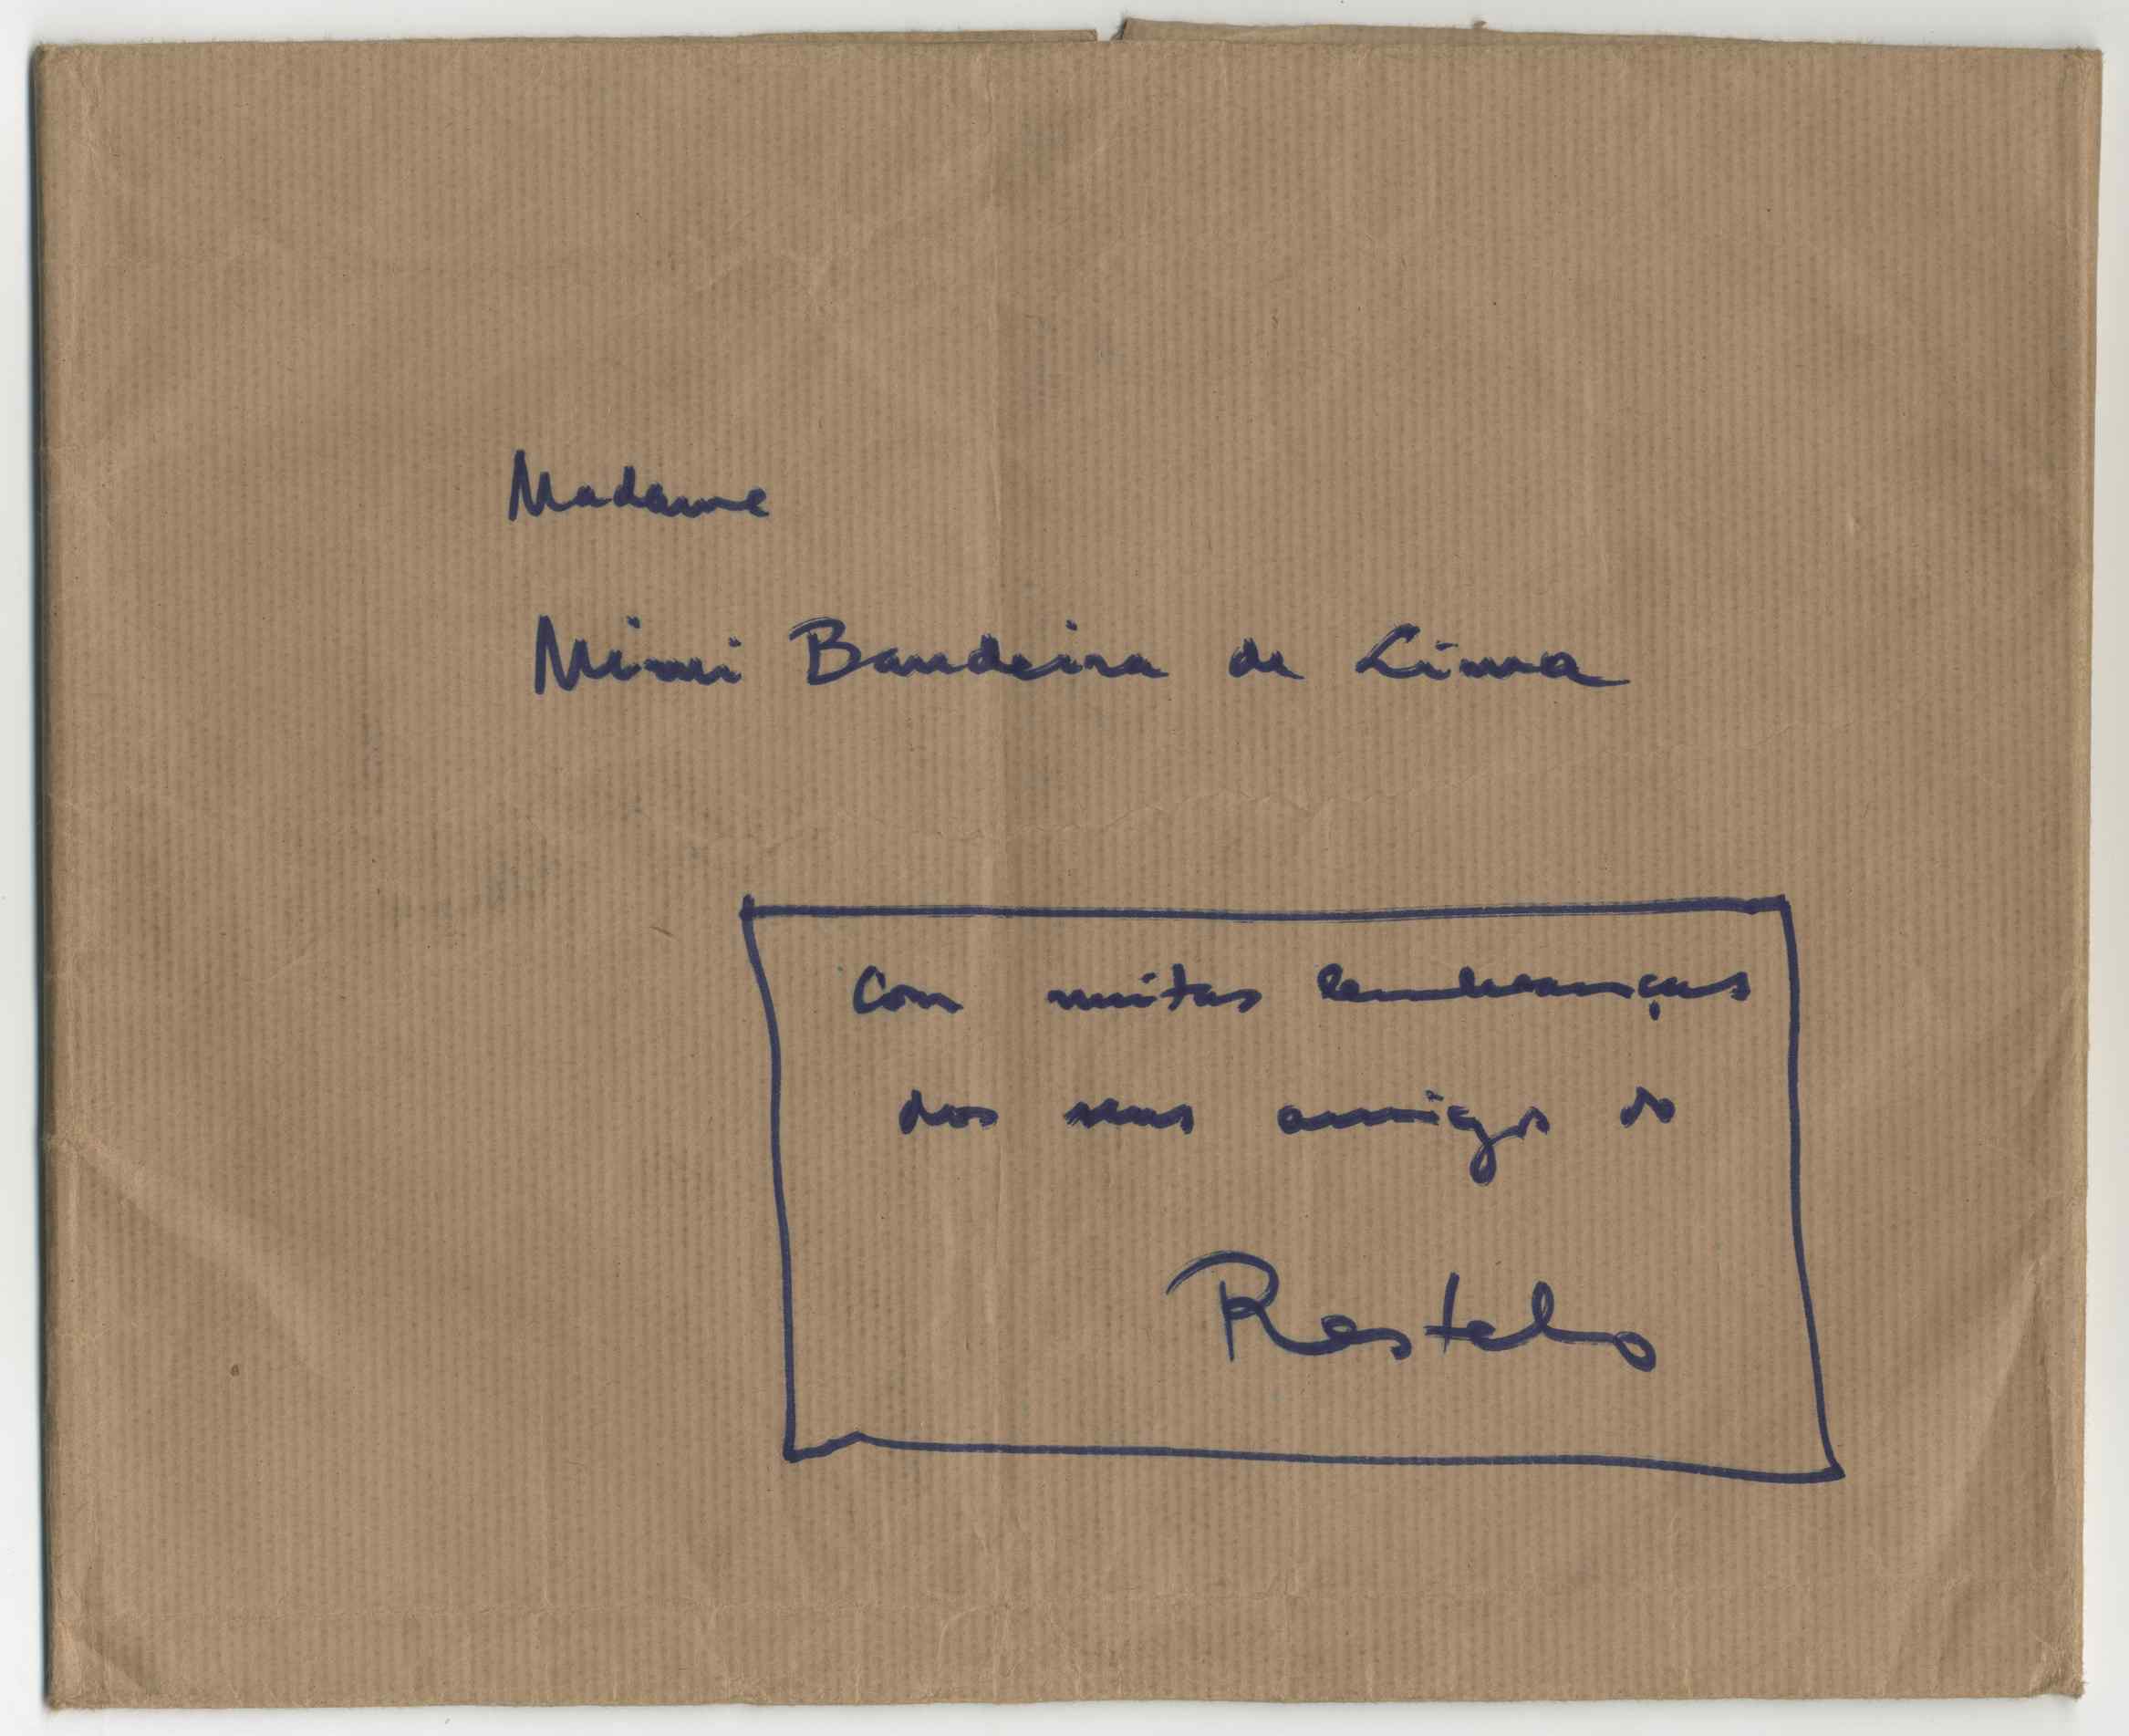 Madame
Mimi Bandeira de Lima
Com muitas lembranças
dos seus amigos do
Restelo